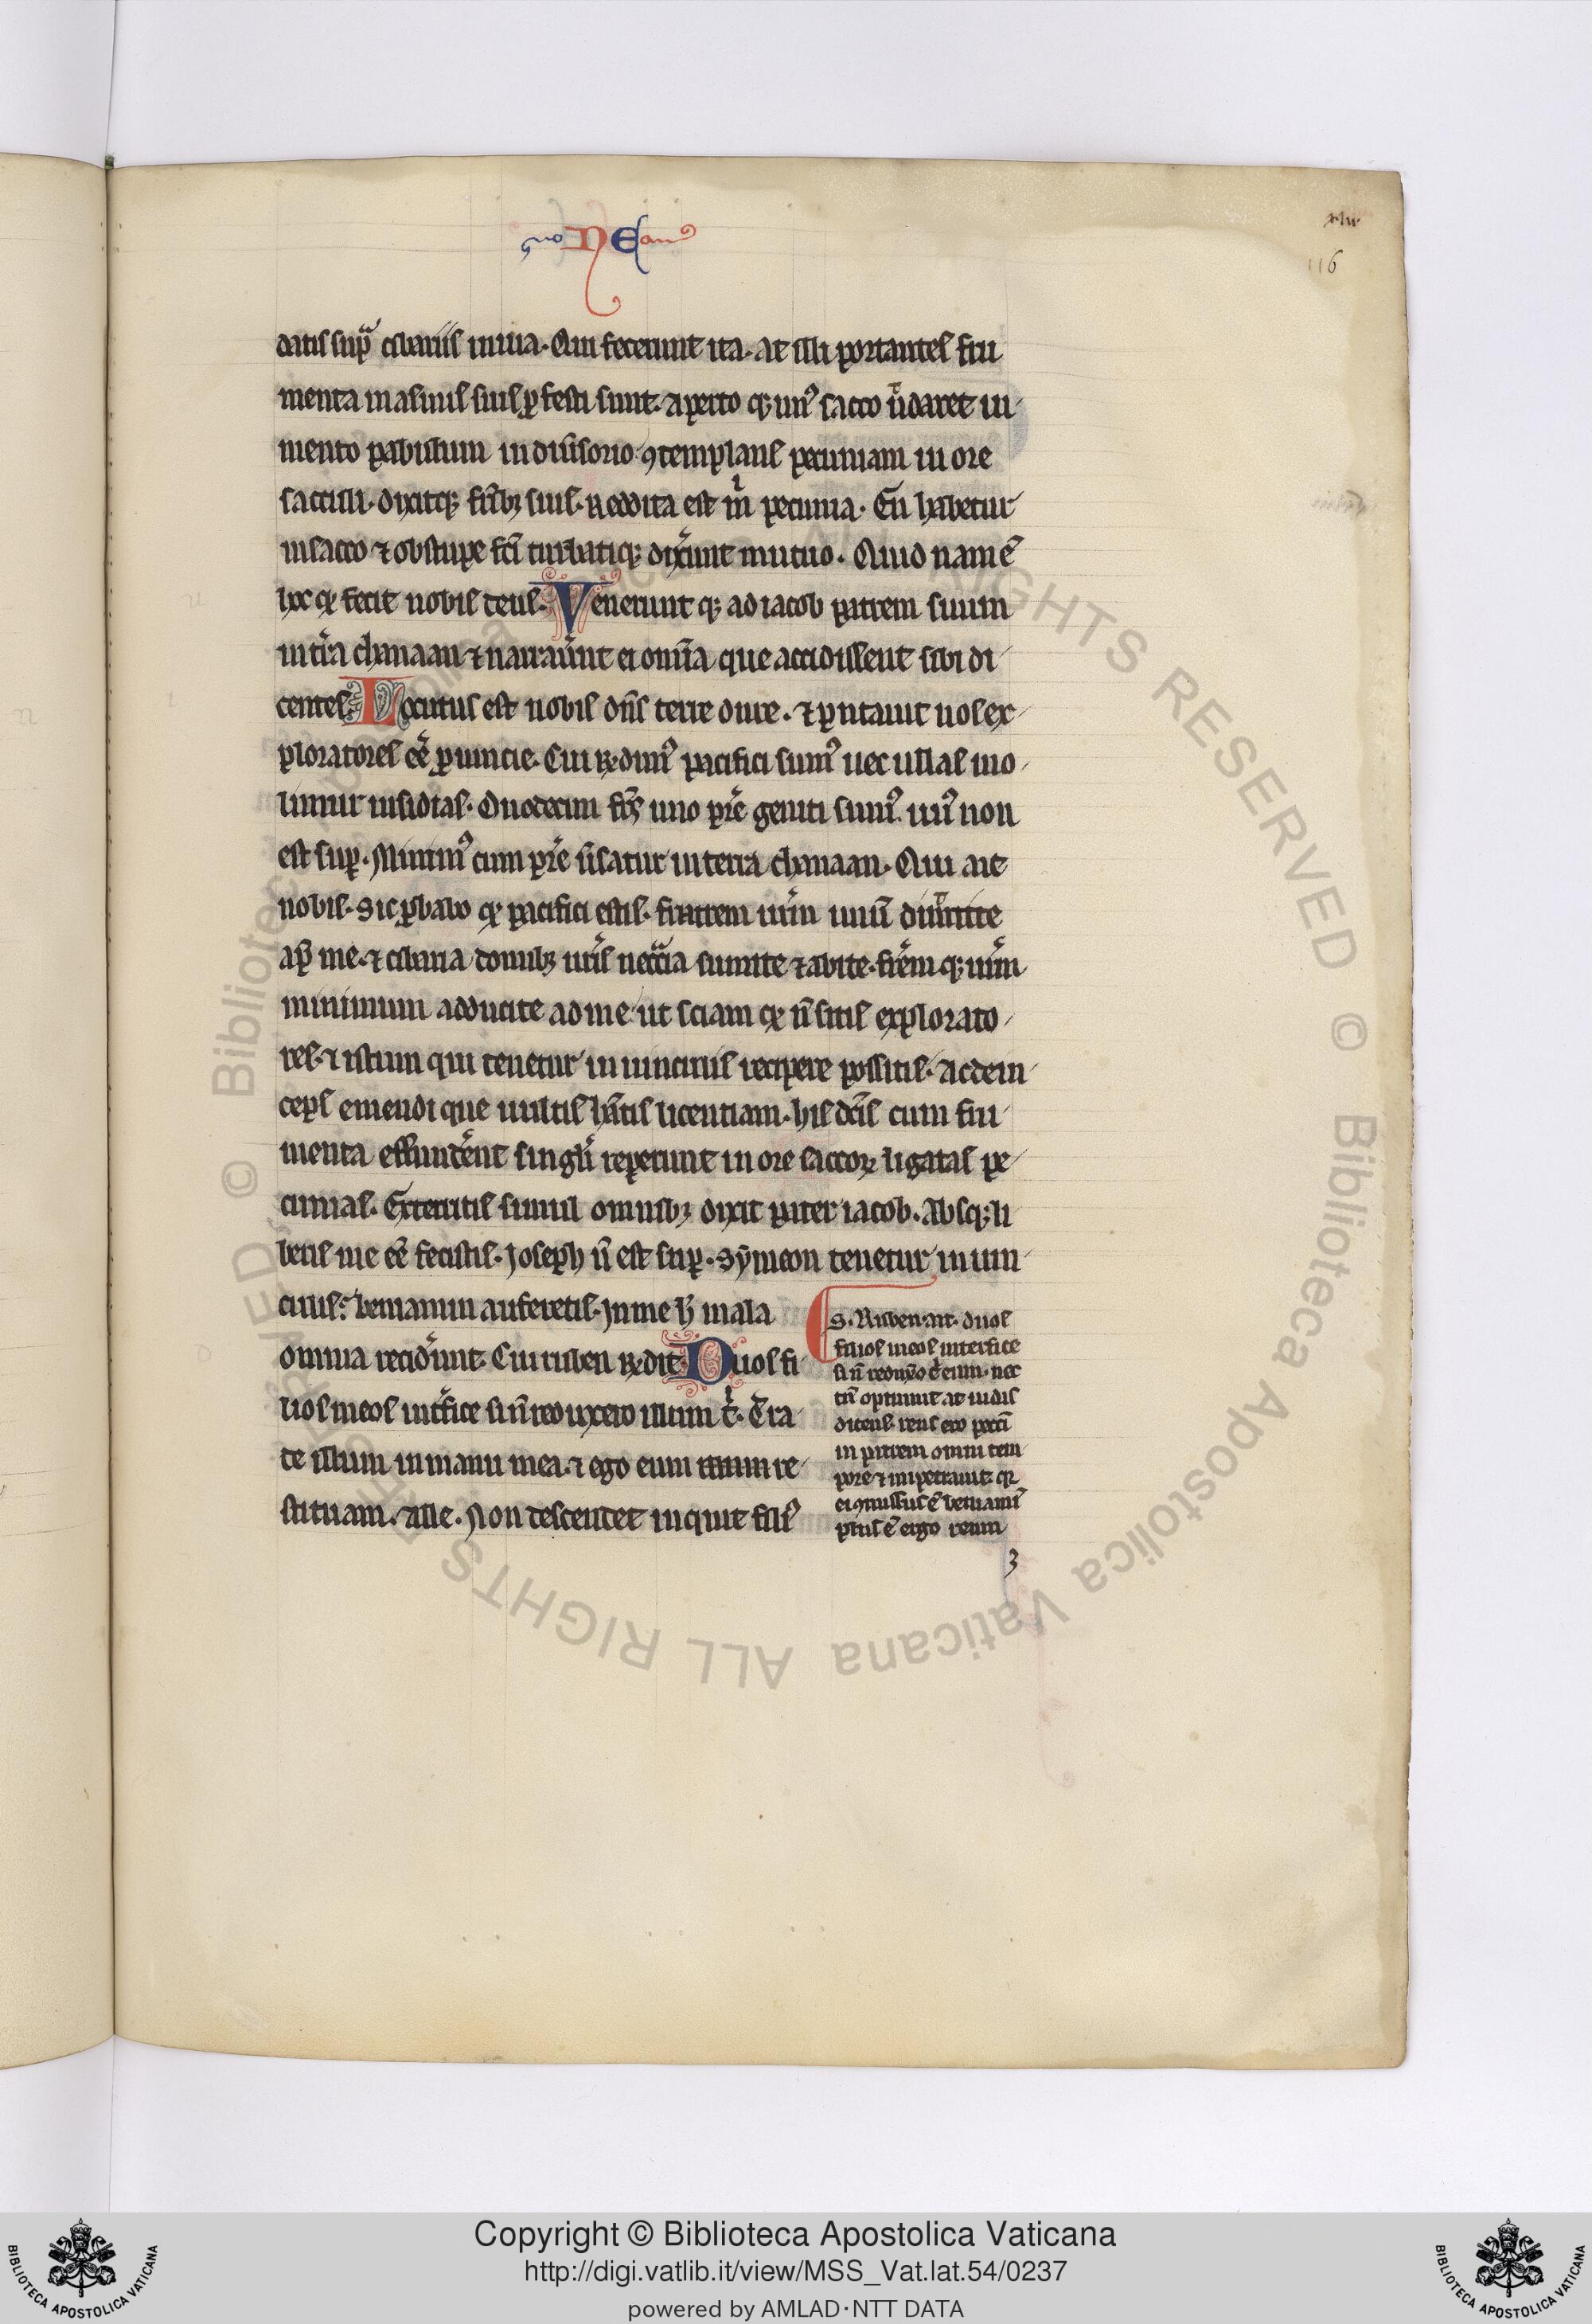 NE
116
datis sup̃ cibariis in uia. Qui fecerunt ita. At illi portantes fru
menta in asinis suis ꝓfecti sunt. aperto qꝫ unꝰ sacco ut̃ daret iu
mento pabulum in diũsorio ꝯtemplans pecuniam in ore
sacculi. dixitqꝫ fr̃ibꝫ suis. Reddita est m̃ pecunia. En habetur
in sacco ⁊ obstupefc̃i turbatiqꝫ dix̃unt mutuo. Quid nam ẽ
hoc qđ fecit nobis deus. Venerunt qꝫ ad iacob patrem suum
in tr̃a chanaan ⁊ narrau̾nt ei om̃ia que accidissent sibi di
centes. Locutus est nobis dñs terre dure. ⁊ putauit nos ex
ploratores eẽ ꝓuincie. Cui rñdimꝰ pacifici sumꝰ nec ullas mo
limur insidias. Duodecim fr̃s uno pr̃e geniti sumꝰ. unꝰ non
est suꝑ. Minimꝰ cum pr̃e ũsatur in terra chanaan. Qui ait
nobis. Sic ꝓbabo qđ pacifici estis. fratrem ur̃m unũ dimittite
apđ me. ⁊ cibaria domibꝫ ur̃is necc̃ia sumite ⁊ abite. fr̃em qꝫ ur̃m
minimum adducite ad me. ut sciam qđ ñ sitis explorato
res. ⁊ istum qui tenetur in uinculis recipere possitis. Ac dein
ceps emendi que uultis hãtis licentiam. his dc̃is cum fru
menta effunder̃ent singl̃i repererunt in ore saccoꝝ ligatas pe
cunias. Exterritis simul omnibꝫ dixit pater iacob. Absqꝫ li
beris me eẽ fecistis. Joseph ñ est suꝑ. Symeon tenetur in uin
culis. beniamin auferetis. In me h̃ mala
omnia recider̃unt. Cui ruben rñdit. Duos fi
lios meos int̾fice si ñ reduxero illum t̾. Tra
de illum in manu mea. ⁊ ego eum restituam
stituam. At ille. Non descendet inquit filiꝰ
S. Ruben. ait. duos
filios meos interfice
si ñ reduxo t̾ eum. nec
tñ optinuit at iudas
dicens. reus ero pecc̃i
in patrem omni tem
pore ⁊ impetrauit qꝛ
ei ꝯmissus ẽ beniamĩ
pius ẽ ergo reum
Copyright © Biblioteca Apostolica Vaticana
http://digi.vatlib.it/view/MSS_Vat.lat.54/0237
powered by AMLAD·NTT DATA
© Biblioteca Apostolica Vaticana ALL RIGHTS RESERVED
BIBLIOTECA APOSTOLICA VATICANA
BIBLIOTECA APOSTOLICA VATICANA